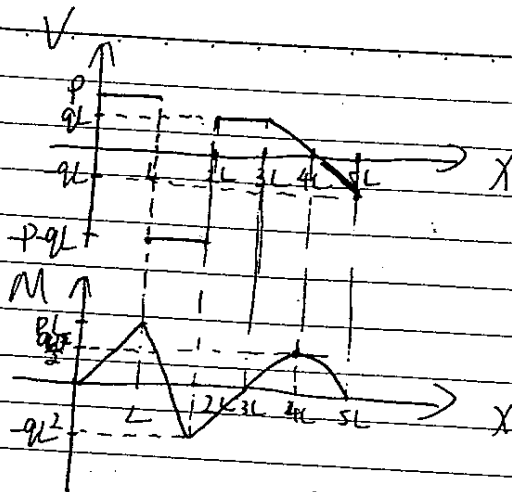 V
P
qL
-qL
L 2L 3L 4L 5L
X
-P-qL
M
PL
L 2L 3L 4L 5L
X
-qL²